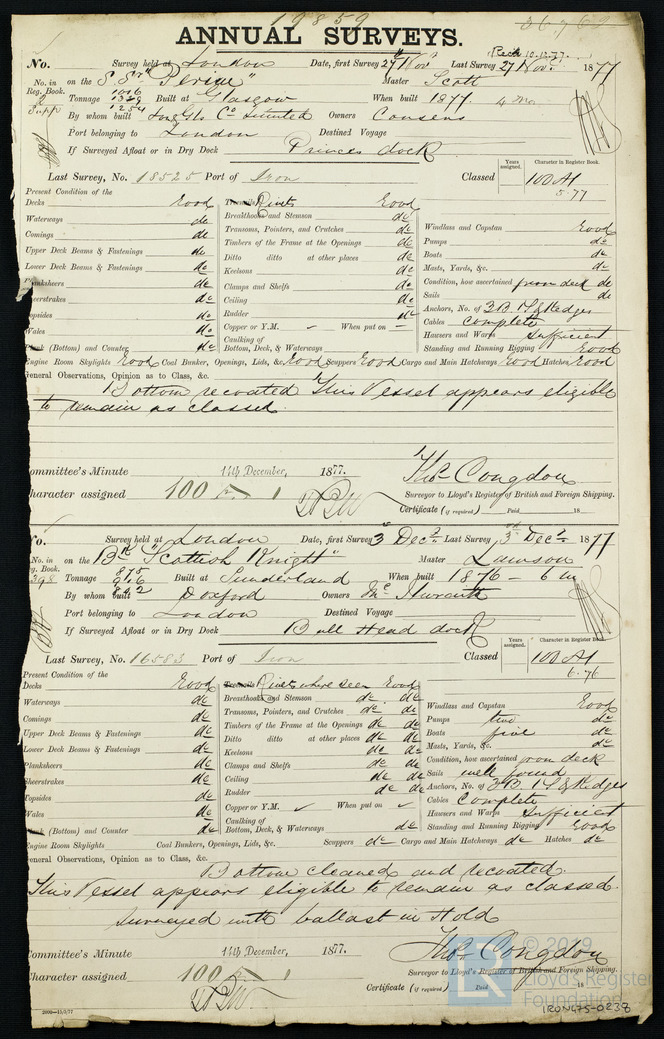 19859
ANNUAL SURVEYS.
Recd 10.12.77.
No. Survey held at London Date, first Survey 27th Nov. Last Survey 27 Nov. 1877
No. in on the S. Sr "Perim" Master Scott
Reg. Book. 1016
Supp Tonnage 1349 Built at Glasgow When built 1877. 4 mo
1254
By whom built Lon & Gls Co Limited Owners Cousens
Port belonging to London Destined Voyage
If Surveyed Afloat or in Dry Dock Princes dock
Last Survey, No. 18525 Port of Iron Classed Years assigned. Character in Register Book. 100 A1
5.77
Present Condition of the
Decks Good Treenails Rivets Good
Waterways do Breasthooks and Stemson do
Comings do Transoms, Pointers, and Crutches do Windlass and Capstan Good
Upper Deck Beams & Fastenings do Timbers of the Frame at the Openings do Pumps do
Lower Deck Beams & Fastenings do Ditto ditto at other places do Boats do
Planksheers do Keelsons do Masts, Yards, &c. do
Sheerstrakes do Clamps and Shelfs do Condition, how ascertained from deck do
Topsides do Ceiling do Sails do
Wales do Rudder do Anchors, No. of 3B. 1S & Kedges
Copper or Y.M. When put on Cables Complete
Plank (Bottom) and Counter do Caulking of Bottom, Deck, & Waterways Hawsers and Warps Sufficient
Standing and Running Rigging Good
Engine Room Skylights Good Coal Bunker, Openings, Lids, &c. Good Scuppers Good Cargo and Main Hatchways Good Hatches Good
General Observations, Opinion as to Class, &c.
Bottom recoated This Vessel appears eligible
to remain as classed
Committee's Minute 14th December, 1877. Thos. Congdon
Character assigned 100 A 1 Surveyor to Lloyd's Register of British and Foreign Shipping.
Certificate (if required) Paid 18
No. Survey held at London Date, first Survey 3d Decr Last Survey 3rd Decr 1877
No. in on the Bk "Scottish Knight" Master Lawson
Reg. Book. 875
398 Tonnage 916 Built at Sunderland When built 1876 - 6 m
842
By whom built Doxford Owners
Port belonging to London Destined Voyage
If Surveyed Afloat or in Dry Dock Bull Head dock
Last Survey, No. 16583 Port of Iron Classed Years assigned. Character in Register Book. 100 A1
6.76
Present Condition of the
Decks Good Treenails Rivets where seen Good
Waterways do Breasthooks and Stemson do do
Comings do Transoms, Pointers, and Crutches do do Windlass and Capstan Good
Upper Deck Beams & Fastenings do Timbers of the Frame at the Openings do do Pumps two do
Lower Deck Beams & Fastenings do Ditto ditto at other places do do Boats five do
Planksheers do Keelsons do do Masts, Yards, &c. do
Sheerstrakes do Clamps and Shelfs do do Condition, how ascertained from deck
Topsides do Ceiling do do Sails well found
Wales do Rudder do do Anchors, No. of 3B. 1S & Kedges
Copper or Y.M. When put on Cables Complete
Plank (Bottom) and Counter do Caulking of Bottom, Deck, & Waterways do Hawsers and Warps Sufficient
Standing and Running Rigging Good
Engine Room Skylights Coal Bunkers, Openings, Lids, &c. Scuppers do Cargo and Main Hatchways do Hatches do
General Observations, Opinion as to Class, &c.
Bottom cleaned and recoated.
This Vessel appears eligible to remain as classed.
Surveyed with ballast in Hold
Committee's Minute 14th December, 1877. Thos. Congdon
Character assigned 100 A 1 Surveyor to Lloyd's Register of British and Foreign Shipping.
Certificate (if required) Paid 18
© 2019
Lloyd's Register
Foundation
2000—15/2/77
IRON475-0238